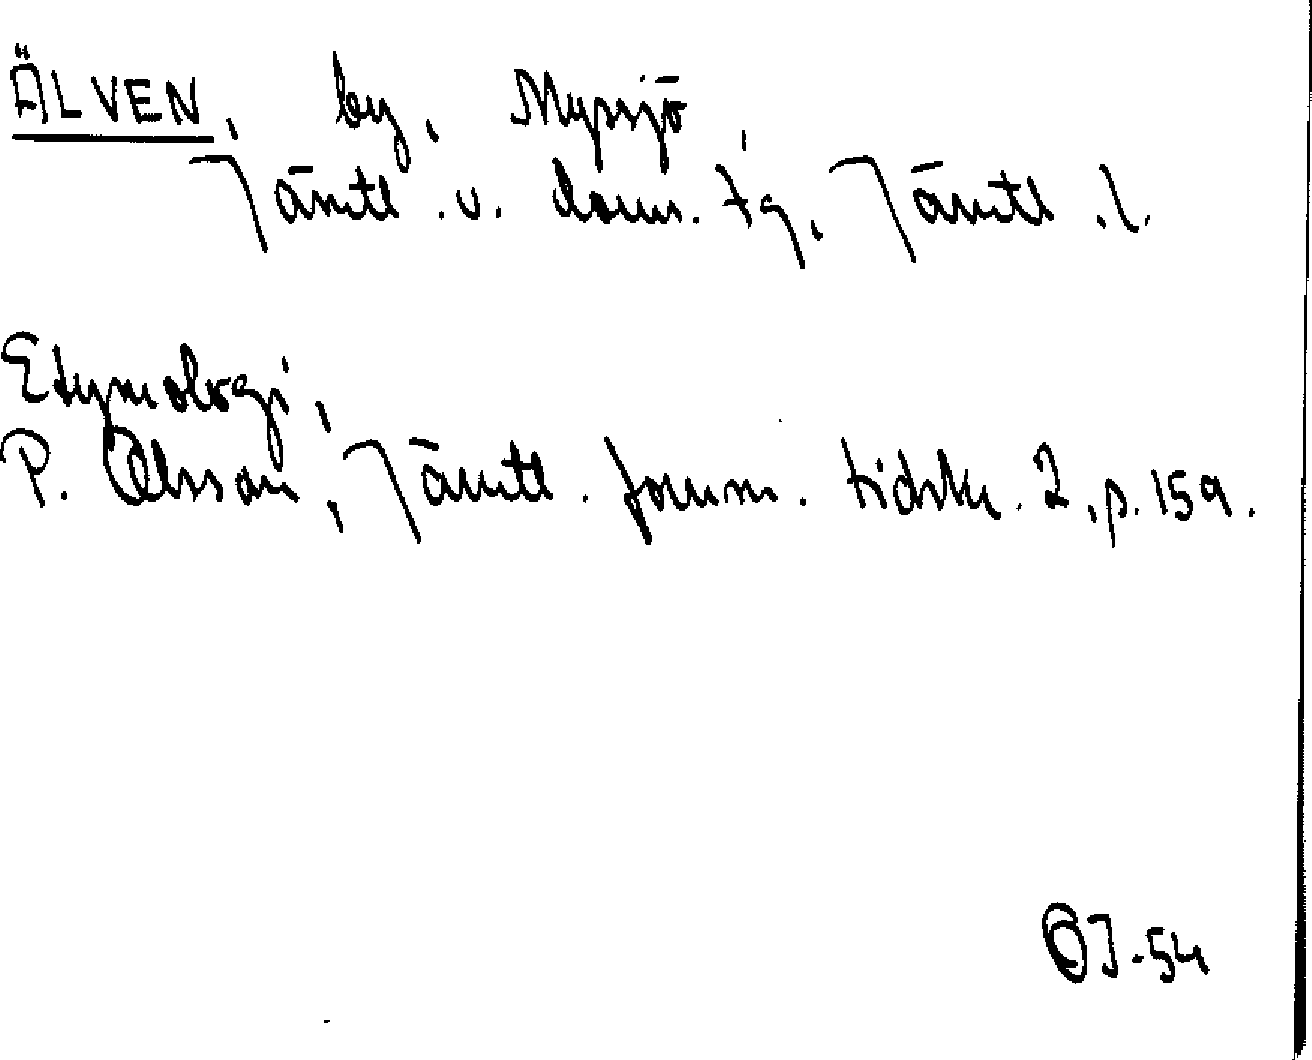 ÄLVEN, by, Mypsjö,
Jämtl. v. doms. tg, Jämtl. l.
Etymologi,
P. Olsson, Jämtl. fornm. tidskr. 2, p. 159.
OJ-54